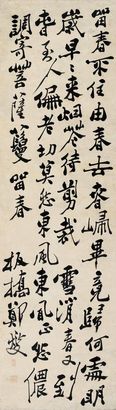 留春不住由春去春歸畢竟歸何處明
歲早些來烟花待剪裁 雪消春又到
春至人偏老切莫怨東風東風正怨儂
調寄菩薩蠻 留春
板橋鄭燮